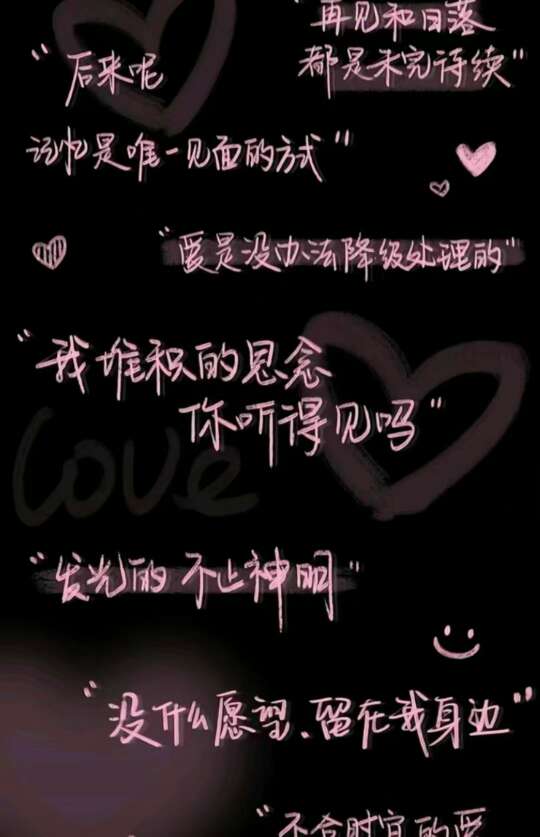 "再见和日落
都是未完待续"
"后来呢
记忆是唯一见面的方式"
"爱是没办法降级处理的"
"我堆积的思念
你听得见吗"
Love
"发光的不止神明"
"没什么愿望、留在我身边"
"不合时宜的爱